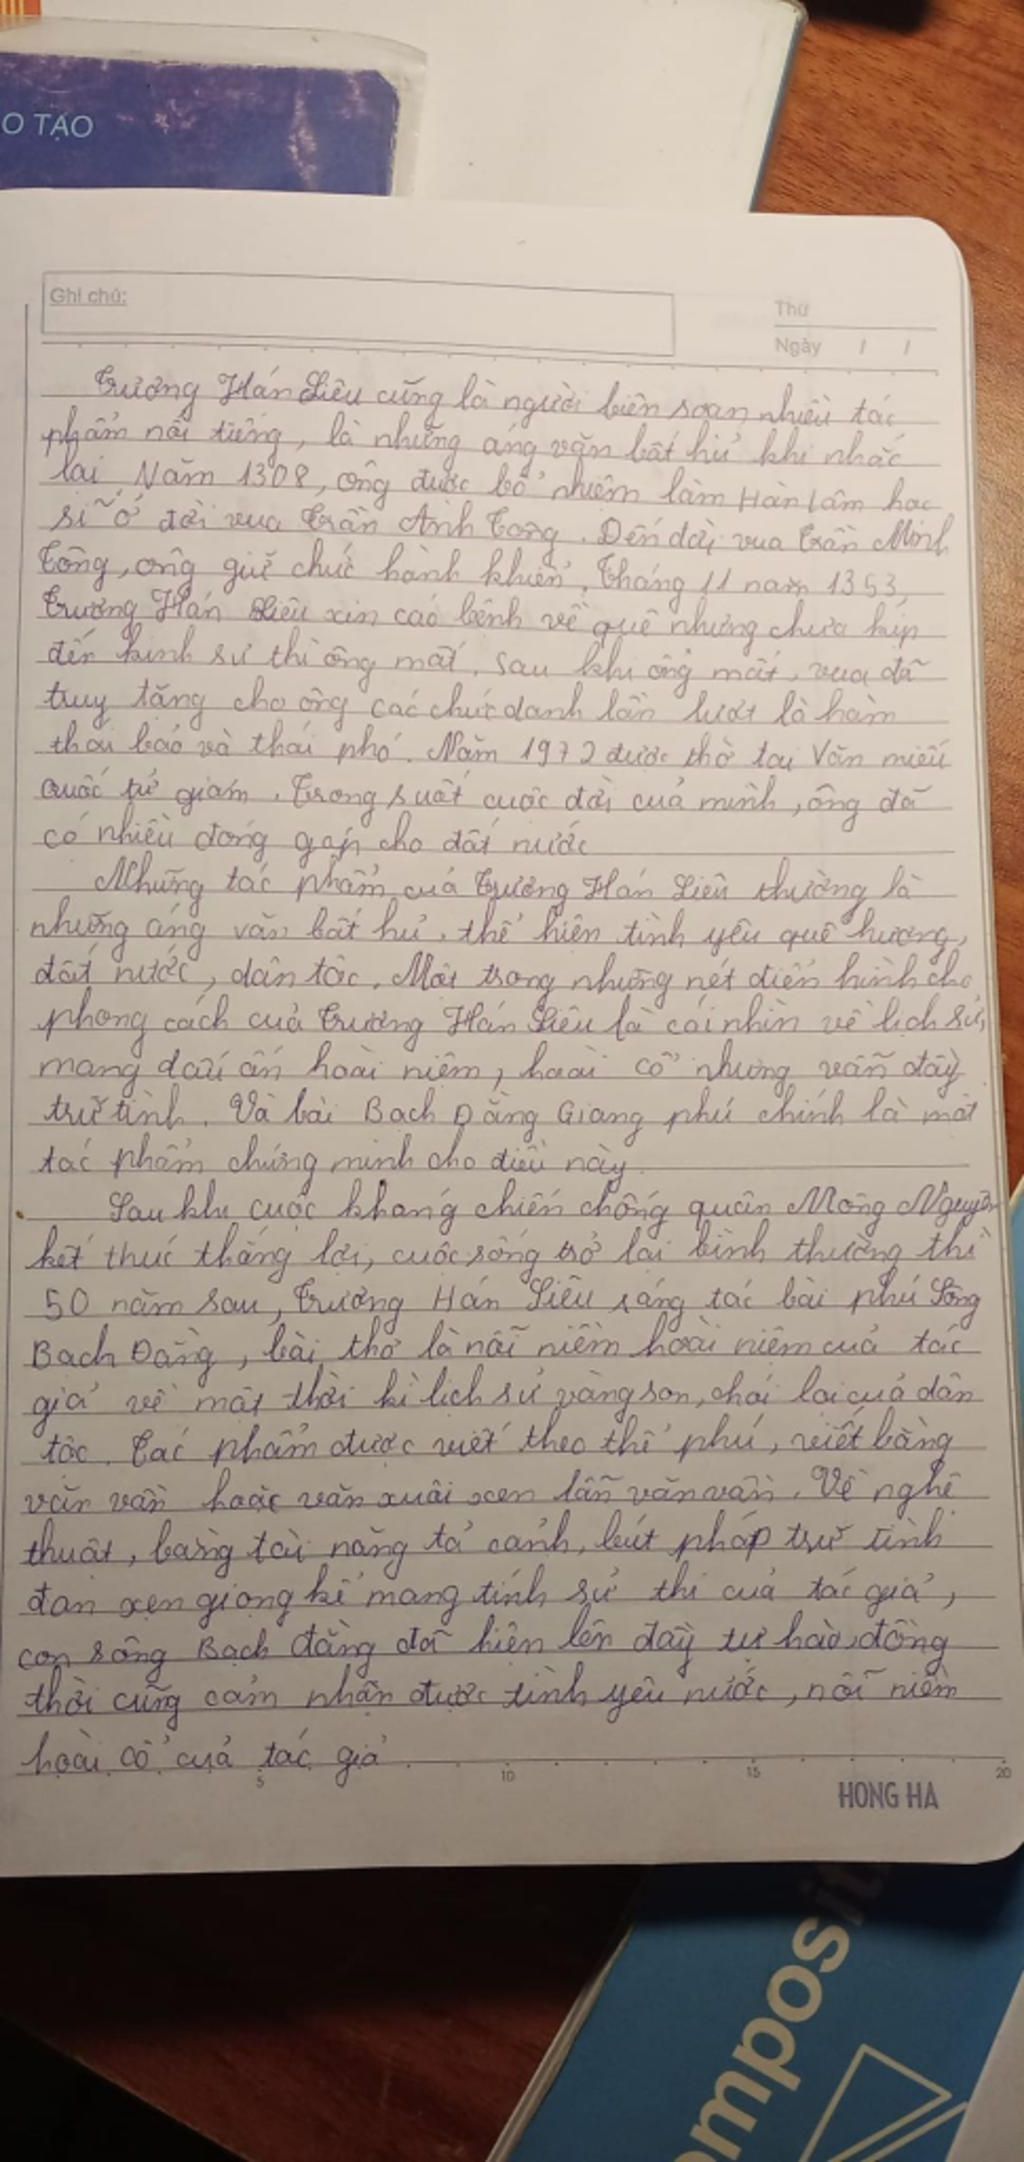 O TẠO
Ghi chú:
Thứ
Ngày / /
Trương Hán Siêu cũng là người biên soạn nhiều tác
phẩm nổi tiếng, là những áng văn bất hủ khi nhắc
lại. Năm 1308, ông được bổ nhiệm làm Hàn lâm học
sĩ ở đời vua Trần Anh Tông. Đến đời vua Trần Minh
Tông, ông giữ chức hành khiển. Tháng 11 năm 1353,
Trương Hán Siêu xin cáo bệnh về quê nhưng chưa kịp
đến kinh sư thì ông mất. Sau khi ông mất, vua đã
truy tặng cho ông các chức danh lần lượt là hàm
thái bảo và thái phó. Năm 1972 được thờ tại Văn miếu
Quốc tử giám. Trong suốt cuộc đời của mình, ông đã
có nhiều đóng góp cho đất nước
Những tác phẩm của Trương Hán Siêu thường là
những áng văn bất hủ, thể hiện tình yêu quê hương,
đất nước, dân tộc. Một trong những nét điển hình cho
phong cách của Trương Hán Siêu là cái nhìn về lịch sử,
mang dấu ấn hoài niệm, hoài cổ nhưng vẫn đầy
trữ tình. Và bài Bạch Đằng Giang phú chính là một
tác phẩm chứng minh cho điều này.
Sau khi cuộc kháng chiến chống quân Mông Nguyên
kết thúc thắng lợi, cuộc sống trở lại bình thường thì
50 năm sau, Trương Hán Siêu sáng tác bài phú Sông
Bạch Đằng, bài thơ là nỗi niềm hoài niệm của tác
giả về một thời kì lịch sử vàng son, chói lọi của dân
tộc. Tác phẩm được viết theo thể phú, viết bằng
văn vần hoặc văn xuôi xen lẫn văn vần. Về nghệ
thuật, bằng tài năng tả cảnh, bút pháp trữ tình
đan xen giọng kể mang tính sử thi của tác giả,
con sông Bạch đằng đã hiện lên đầy tự hào, đồng
thời cũng cảm nhận được tình yêu nước, nỗi niềm
hoài cổ của tác giả
5 10 15 20
HONG HA